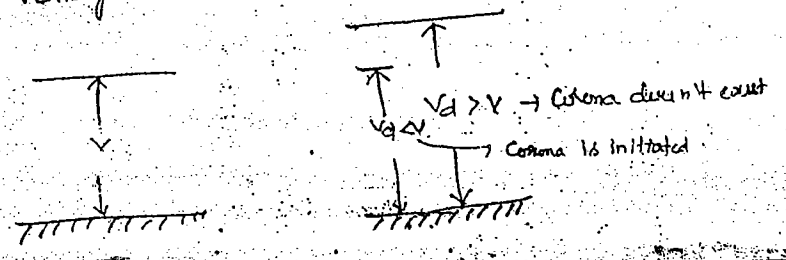 Vd > V → Corona doesn't exist
V
Vd < V
→ Corona is initiated